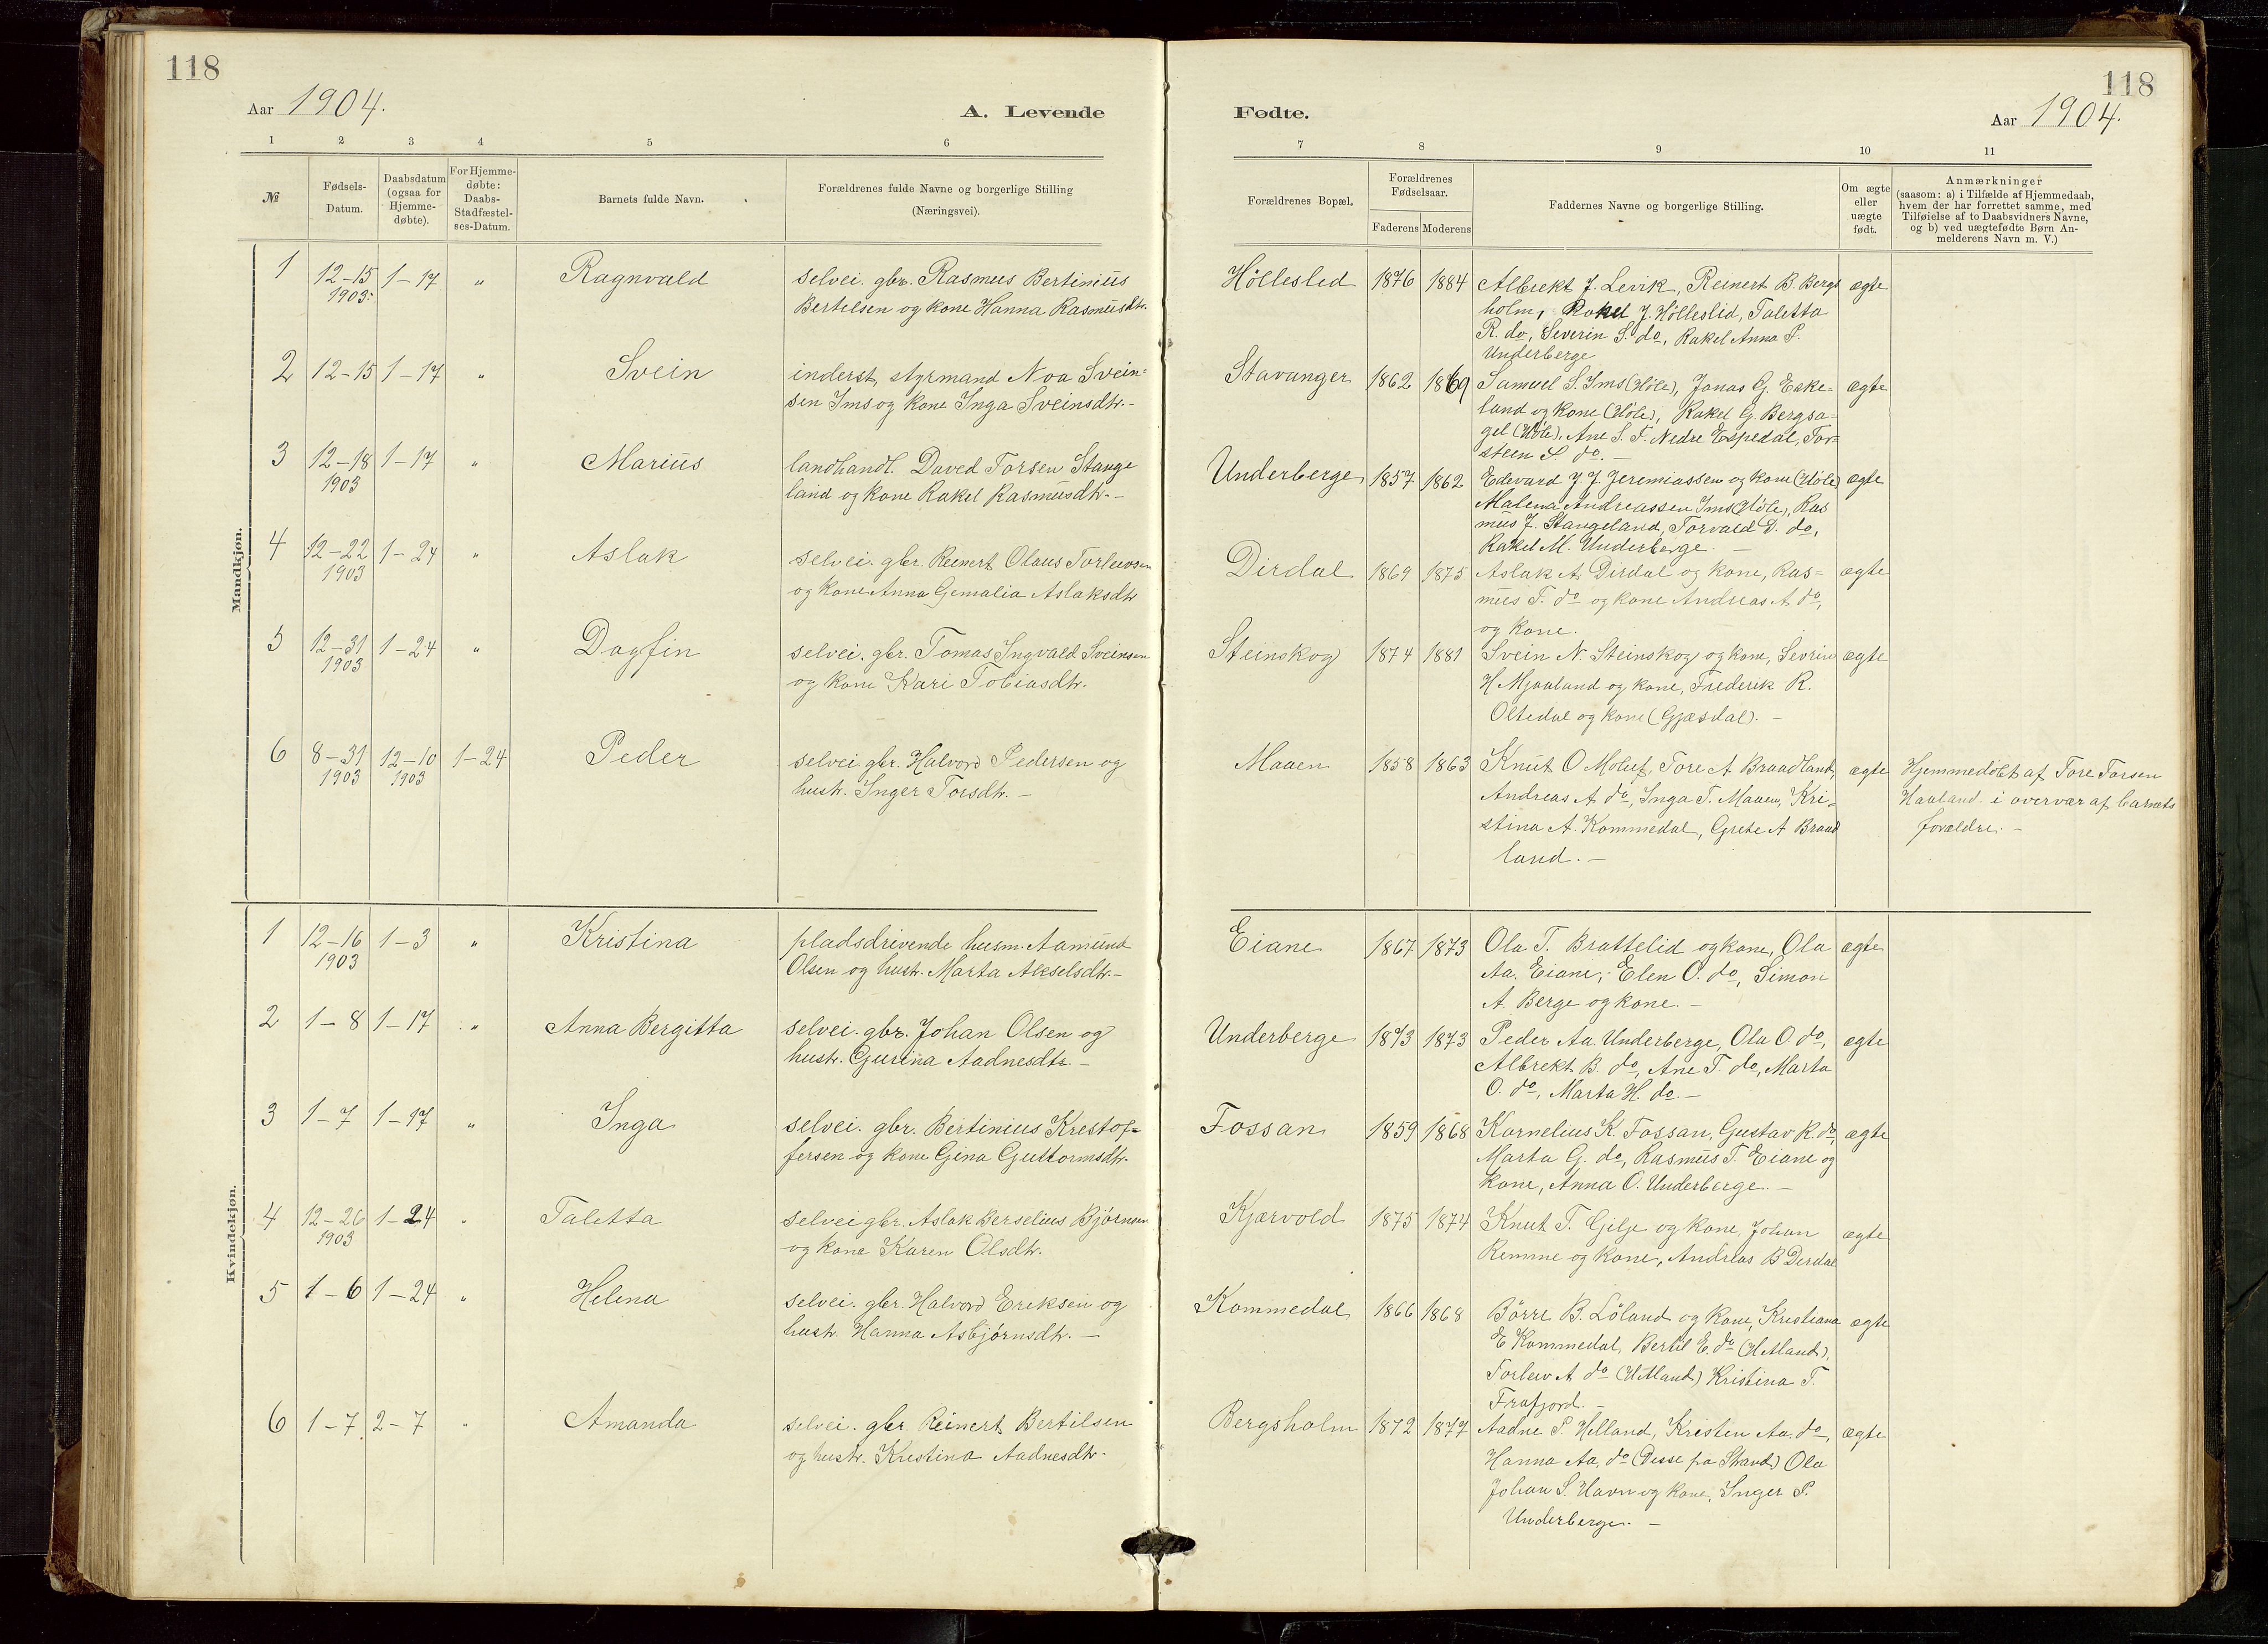 118
Aar 1904.
A. Levende
1 2 3 4 5 6
№
Fødsels-Datum.
Daabsdatum (ogsaa for Hjemme-døbte).
For Hjemme-døbte: Daabs-Stadfæstel-ses-Datum.
Barnets fulde Navn.
Forældrenes fulde Navne og borgerlige Stilling
(Næringsvei).
Mandkjøn.
1 12-15 1903. 1-17 " Ragnvald
selvei. gbr. Rasmus Bertinius
Bertelsen og kone Hanna Rasmusdtr.
2 12-15 1-17 " Svein
inderst, styrmand Noa Svein=
sen Ims og kone Inga Sveinsdtr.-
3 12-18 1903 1-17 " Marius
landhandl. Daved Torsen Stange
land og kone Rakel Rasmusdtr.-
4 12-22 1903 1-24 " Aslak
selvei. gbr. Reinert Olaus Torleivsen
og kone Anna Gemalia Aslaksdtr
5 12-31 1903 1-24 " Dagfin
selvei. gbr. Tomas Ingvald Sveinsen
og kone Kari Tobiasdtr.
6 8-31 1903 12-10 1903 1-24 Peder
selvei. gbr. Halvord Pedersen og
hustr. Inger Torsdtr. -
Kvindekjøn.
1 12-16 1903 1-3 " Kristina
pladsdrivende husm. Aamund
Olsen og hustr. Marta Akselsdtr.-
2 1-8 1-17 " Anna Bergitta
selvei. gbr. Johan Olsen og
hustr. Gurina Aadnesdtr. -
3 1-7 1-17 " Inga
selvei. gbr. Bertinius Krestof=
fersen og kone Gena Guttormsdtr.
4 12-26 1903 1-24 " Taletta
selvei gbr. Aslak Berselius Bjørnsen
og kone Karen Olsdtr.
5 1-6 1-24 " Helena
selvei. gbr. Halvord Ereksen og
hustr. Hanna Asbjørnsdtr. -
6 1-7 2-7 " Amanda
selvei. gbr. Reinert Bertilsen
og hustr. Kristina Aadnesdtr.
118
Fødte.
Aar 1904.
7 8 9 10 11
Forældrenes Bopæl.
Forældrenes Fødselsaar.
Faderens Moderens
Faddernes Navne og borgerlige Stilling.
Om ægte eller uægte født.
Anmærkninger
(saasom: a) i Tilfælde af Hjemmedaab,
hvem der har forrettet samme, med
Tilføielse af to Daabsvidners Navne,
og b) ved uægtefødte Børn An-
melderens Navn m. V.)
Hølleslid 1876 1884 Albrekt J. Levik, Reinert B. Bergs ægte
holm, Rakel J. Hølleslid, Taletta
R. do, Severin S. do, Rakel Anna P.
Underberge
Stavanger 1862 1869 Samuel S. Ims (Høle), Jonas G. Eske= ægte
land og kone (Høle), Rakel G. Bergsa=
gel (Høle), Ane S. F. Nedre Espedal, Tor=
stein S. do. -
Underberge 1857 1862 Edevard J. J. Jeremiassen og kone (Høle) ægte
Malena Andreassen Ims (Høle), Ras
mus J. Stangeland, Torvald D. do,
Rakel M. Underberge. -
Dirdal 1869 1875 Aslak A. Dirdal og kone, Ras= ægte
mus T. do og kone Andreas A do,
og kone.
Steinskog 1874 1881 Svein N. Steinskog og kone, Sevrin ægte
H Mjaaland og kone, Frederik R.
Oltedal og kone (Gjæsdal). -
Maaen 1858 1863 Knut O Molaug, Tore A Braadland, ægte
Andreas A do, Inga T. Maaen, Kri=
stina A. Kommedal, Grete A Braad
land. -
Hjemmedøbt af Tore Torsen
Haaland i overvær af barnets
forældre. -
Eiane 1867 1873 Ola T. Brattelid og kone, Ola ægte
Aa. Eiane, Elen O. do, Simon
A. Berge og kone. -
Underberge 1873 1873 Peder Aa. Underberge, Ola O. do, ægte
Albrekt B. do, Ane T. do, Marta
O. do, Marta H. do. -
Fossan 1859 1868 Kornelius K. Fossan, Gustav K. do, ægte
Marta G. do, Rasmus T. Eiane og
kone, Anna O. Underberge. -
Kjærvold 1875 1874 Knut T. Gilje og kone, Johan ægte
Remme og kone, Andreas B Derdal
Kommedal 1866 1868 Børre B. Løland og kone, Kristiana ægte
E Kommedal, Bertil E. do (Hetland),
Torleiv A do (Hetland) Kristina T.
Frafjord. -
Bergsholm 1872 1877 Aadne P. Helland, Kristen Aa. do, ægte
Hanna Aa. do (Disse fra Strand) Ola
Johan S. Havn og kone, Inger P.
Underberge. -